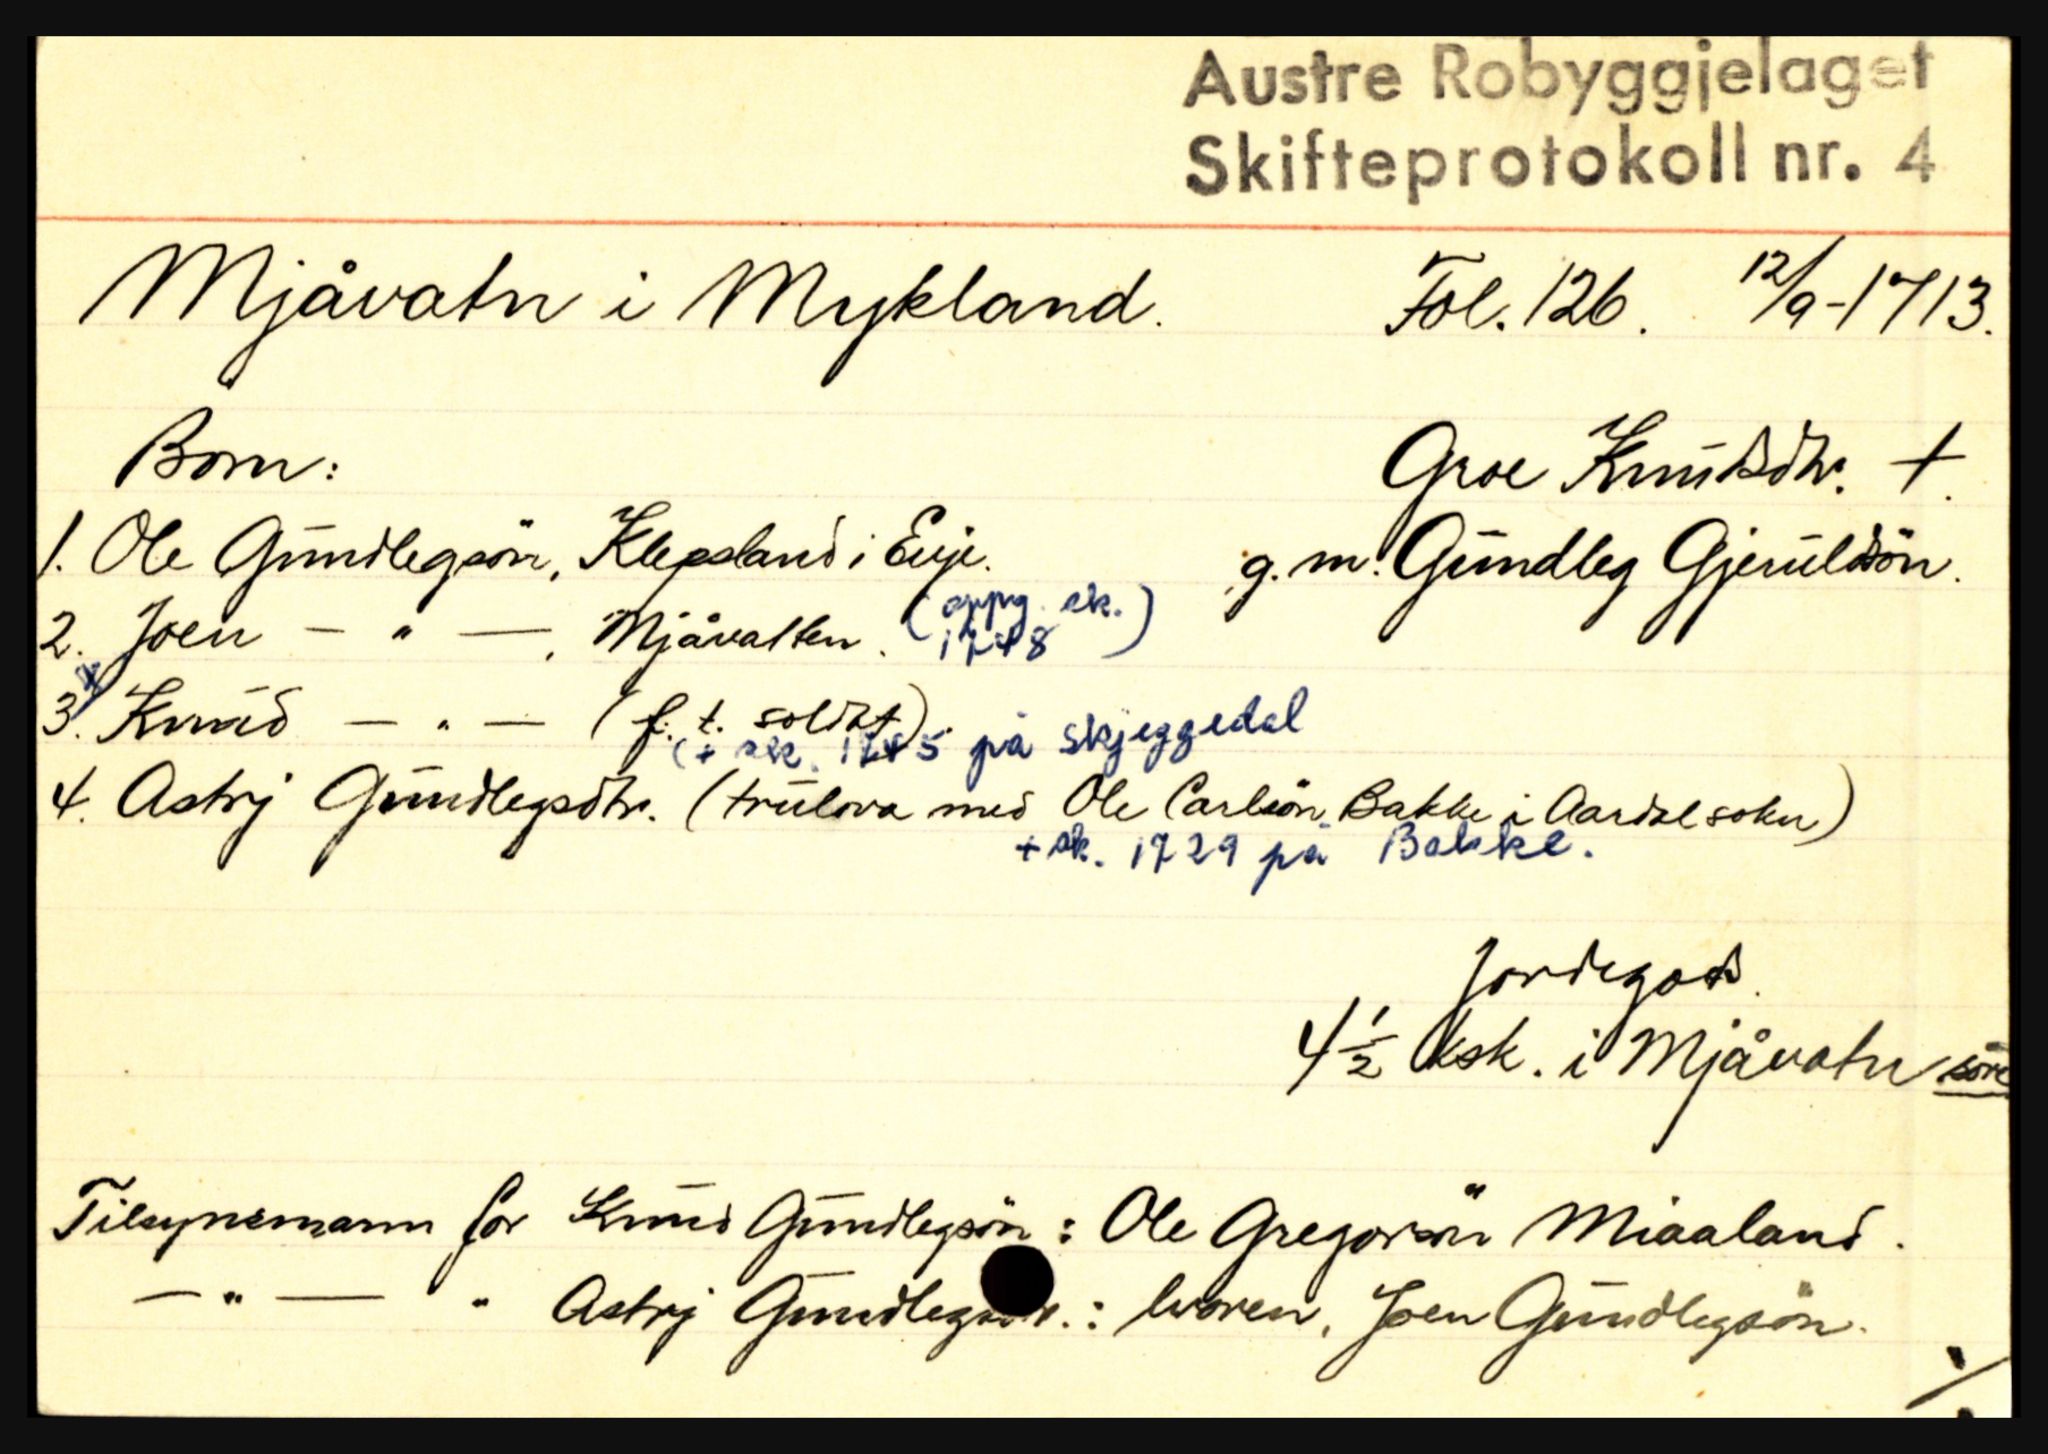 Austre Robyggjelaget
Skifteprotokoll nr. 4
Mjåvatn i Mykland. Fol. 126. 12/9-1713.
Born: Groe Knutsdtr. +.
1. Ole Gundlegsön, Klepsland i Evje. g.m. Gundleg Gjeruldsön.
2. Joen — " —, Mjåvatten. (oppg. sk. 1748)
3. Knud — " — (f. t. soldat).
(+ sk. 1745 på Skjeggedal
4. Astrj Gundlegsdtr. (trulova med Ole Carlsön Bakke i Aardal sokn)
+ sk. 1729 på Bakke.
Jordegods.
4 1/2 ksk. i Mjåvatn söre
Tilsynsmann for Knud Gundlegsön: Ole Gregorsön Miaaland.
— " — " Astrj : broren, Joen Gundlegsön.